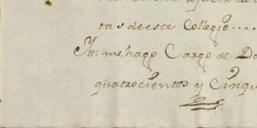 tas de este Colegio....
Yt. me hago Cargo de
quatrocientos y Cinqu